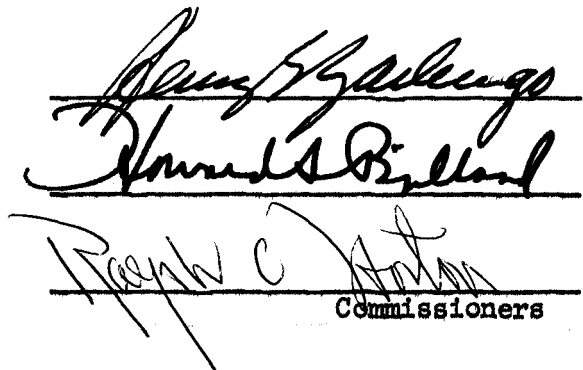 Henry E Zarlengo
Howard S Bjelland
Ralph C Horton
Commissioners